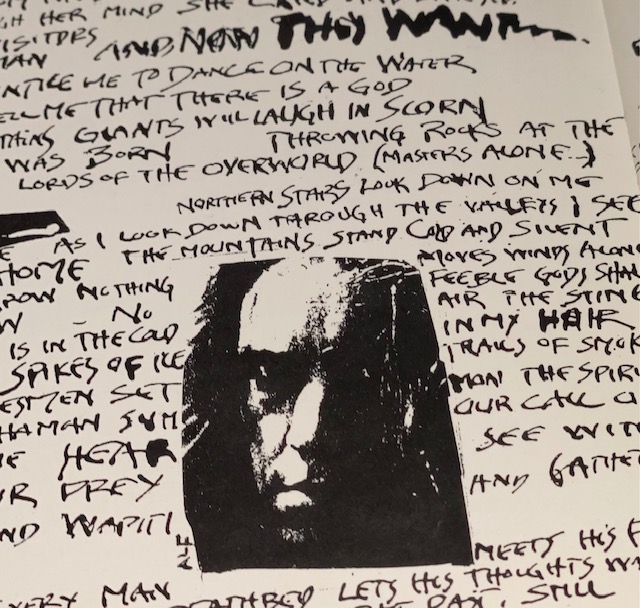 GH HER MIND SHE
VISITORS
MAN AND NOW THEY WANT...
NTICE ME TO DANCE ON THE WATER
ELL ME THAT THERE IS A GOD
THING GIANTS WILL LAUGH IN SCORN
WAS BORN THROWING ROCKS AT THE
LORDS OF THE OVERWORLD (MASTERS ALONE...)
NORTHERN STARS LOOK DOWN ON ME
AS I LOOK DOWN THROUGH THE VALLEYS I SEE
THE MOUNTAINS STAND COLD AND SILENT
HOME
ROW NOTHING
W NO
IS IN THE COLD
SPIKES OF ICE
ESMEN SET
HAMAN SUM
HE HEAR
UR PREY
ND WAPITI
ALF
MOVES WINDS ALONG
FEEBLE GODS SHAL
AIR THE STING
IN MY HAIR
TRAILS OF SMOK
MON THE SPIRI
OUR CALL
SEE WITH
AND GATHE
MEETS HIS F
EVERY MAN
DEATHBED LETS HIS THOUGHTS WA
THE PAST, STILL